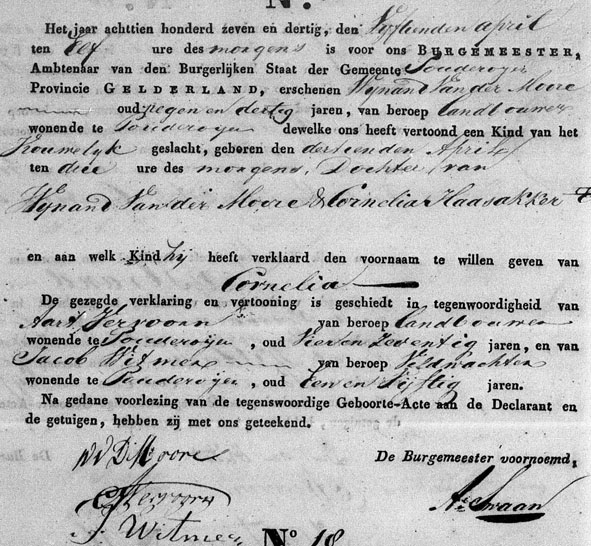 N.
Het jaar achttien honderd zeven en dertig, den Vyftienden april
ten Elf ure des morgens is voor ons BURGEMEESTER,
Ambtenaar van den Burgerlijken Staat der Gemeente Pouderoijen
Provincie GELDERLAND, erschenen Wynand Van der Moore
oud negen en dertig jaren, van beroep landbouwer
wonende te Pouderoijen dewelke ons heeft vertoond een Kind van het
Vrouwelyk geslacht, geboren den dertienden April
ten drie ure des morgens, Dochter van
Wynand Van der Moore & Cornelia Haasakker
en aan welk Kind hy heeft verklaard den voornaam te willen geven van
Cornelia
De gezegde verklaring en vertooning is geschiedt in tegenwoordigheid van
Aart Vervoorn van beroep landbouwer
wonende te Pouderoijen, oud Vier en Zeventig jaren, en van
Jacob Witmer van beroep Veldwachter
wonende te Pouderoijen, oud Een en Vijftig jaren.
Na gedane voorlezing van de tegenswoordige Geboorte-Acte aan de Declarant en
de getuigen, hebben zij met ons geteekend.
W V D Moore
De Burgemeester voornoemd,
Vervoorn
J. Witmer
No 18